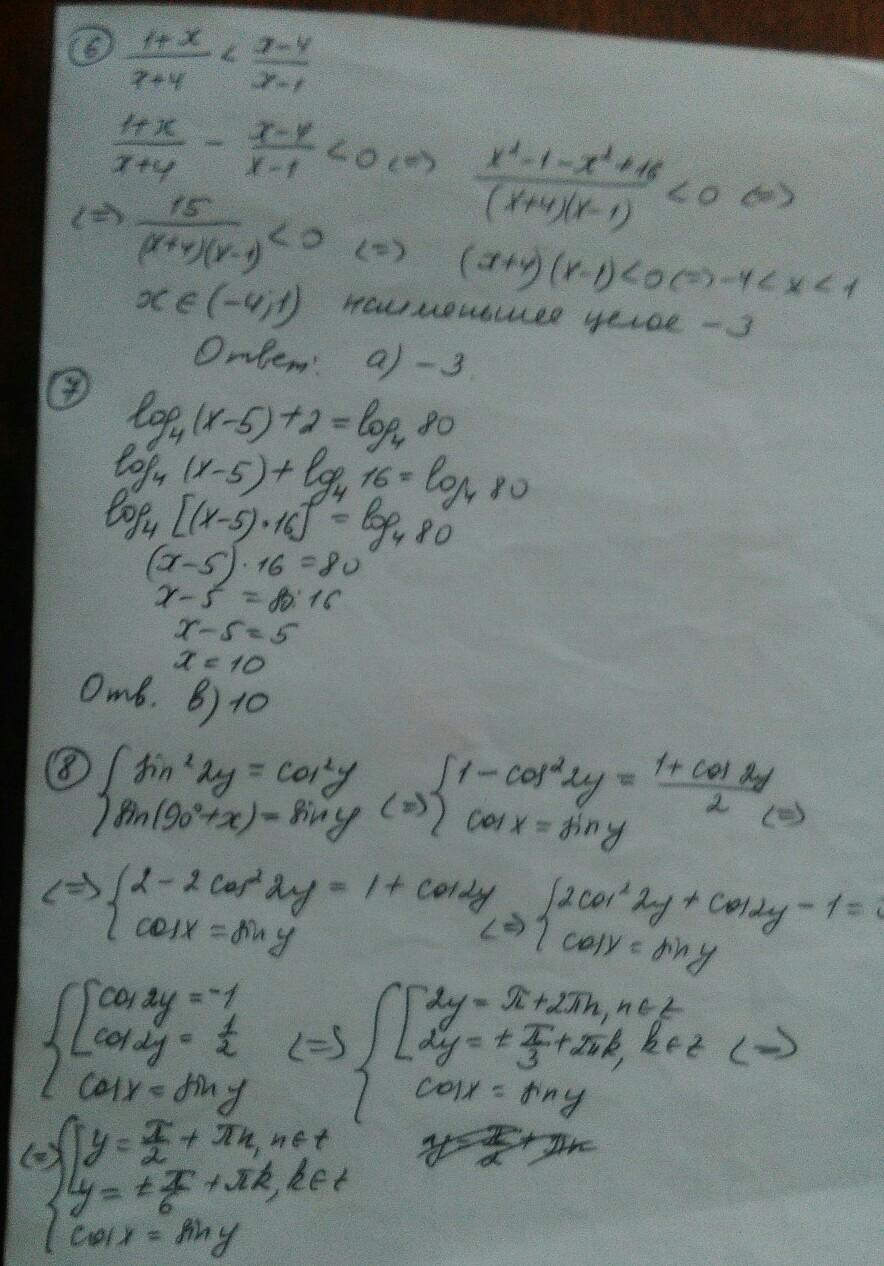 ⑥ (1+x)/(x+4) < (x-4)/(x-1)
(1+x)/(x+4) - (x-4)/(x-1) < 0 <=> (x²-1-x²+16)/((x+4)(x-1)) < 0 <=>
<=> 15/((x+4)(x-1)) < 0 <=> (x+4)(x-1)<0 <=> -4 < x < 1
x ∈ (-4;1) наименьшее целое -3
Ответ: а) -3.
⑦
log₄(x-5)+2 = log₄ 80
log₄ (x-5) + log₄ 16 = log₄ 80
log₄ [(x-5)·16] = log₄ 80
(x-5)·16 = 80
x-5 = 80:16
x-5=5
x=10
Отв. в) 10
⑧ { sin² 2y = cos² y <=> { 1 - cos² 2y = (1+cos 2y)/2 <=>
sin(90°+x) = sin y cos x = sin y
<=> { 2 - 2 cos² 2y = 1 + cos 2y <=> { 2cos² 2y + cos 2y - 1 =
cos x = sin y cos x = sin y
{ [ cos 2y = -1 <=> { [ 2y = π + 2πn, n ∈ z
cos 2y = 1/2 2y = ± π/3 + 2πk, k ∈ z <=>
cos x = sin y cos x = sin y
<=> { [ y = π/2 + πn, n ∈ z
y = ± π/6 + πk, k ∈ z
cos x = sin y